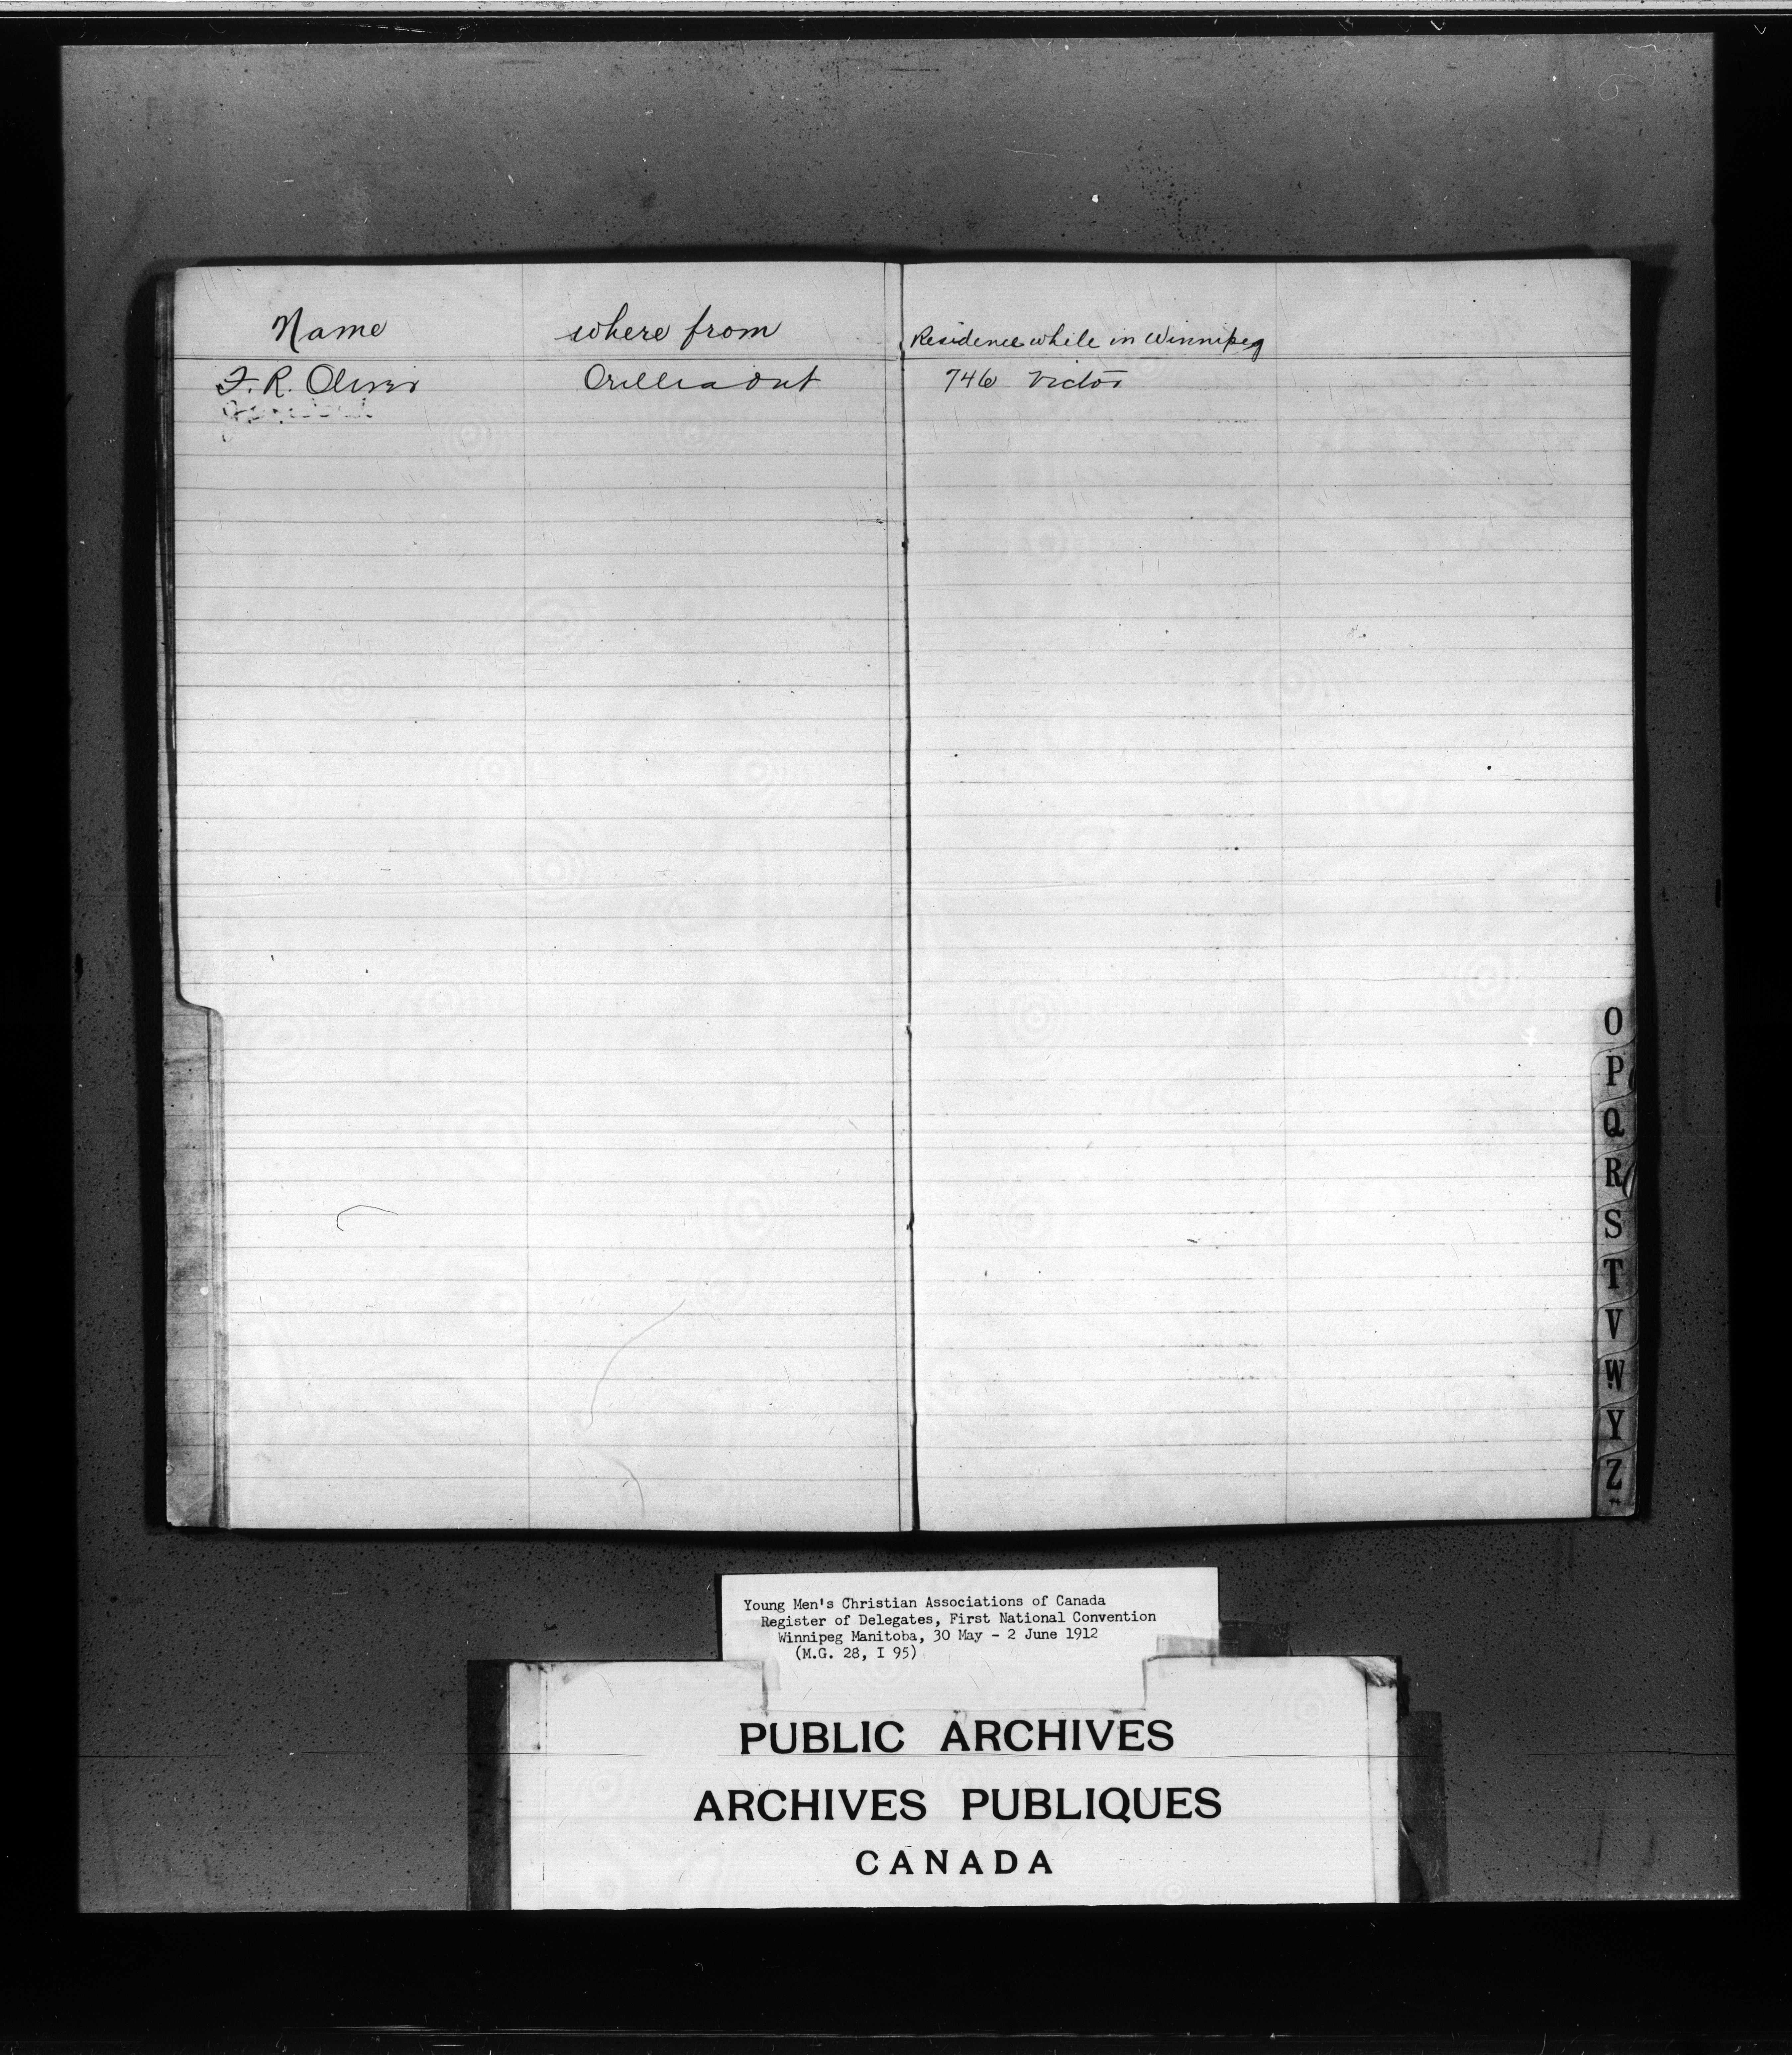 Name where from Residence while in Winnipeg
F. R. Oliver Orillia Ont 746 Victor
O
P
Q
R
S
T
V
W
Y
Z
Young Men's Christian Associations of Canada
Register of Delegates, First National Convention
Winnipeg Manitoba, 30 May - 2 June 1912
(M.G. 28, I 95)
PUBLIC ARCHIVES
ARCHIVES PUBLIQUES
CANADA